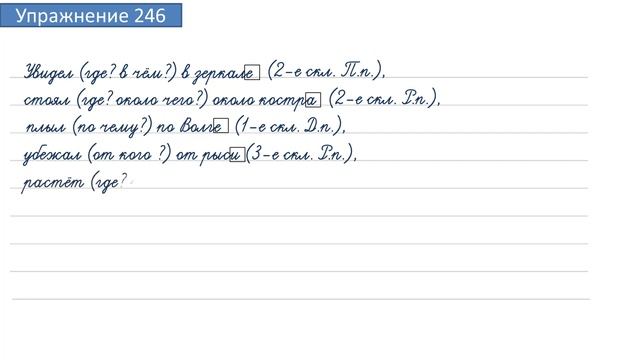 Упражнение 246
Увидел (где? в чём?) в зеркале (2-е скл. П.п.),
стоял (где? около чего?) около костра (2-е скл. Р.п.),
плыл (по чему?) по Волге (1-е скл. Д.п.),
убежал (от кого ?) от рыси (3-е скл. Р.п.),
растёт (где?